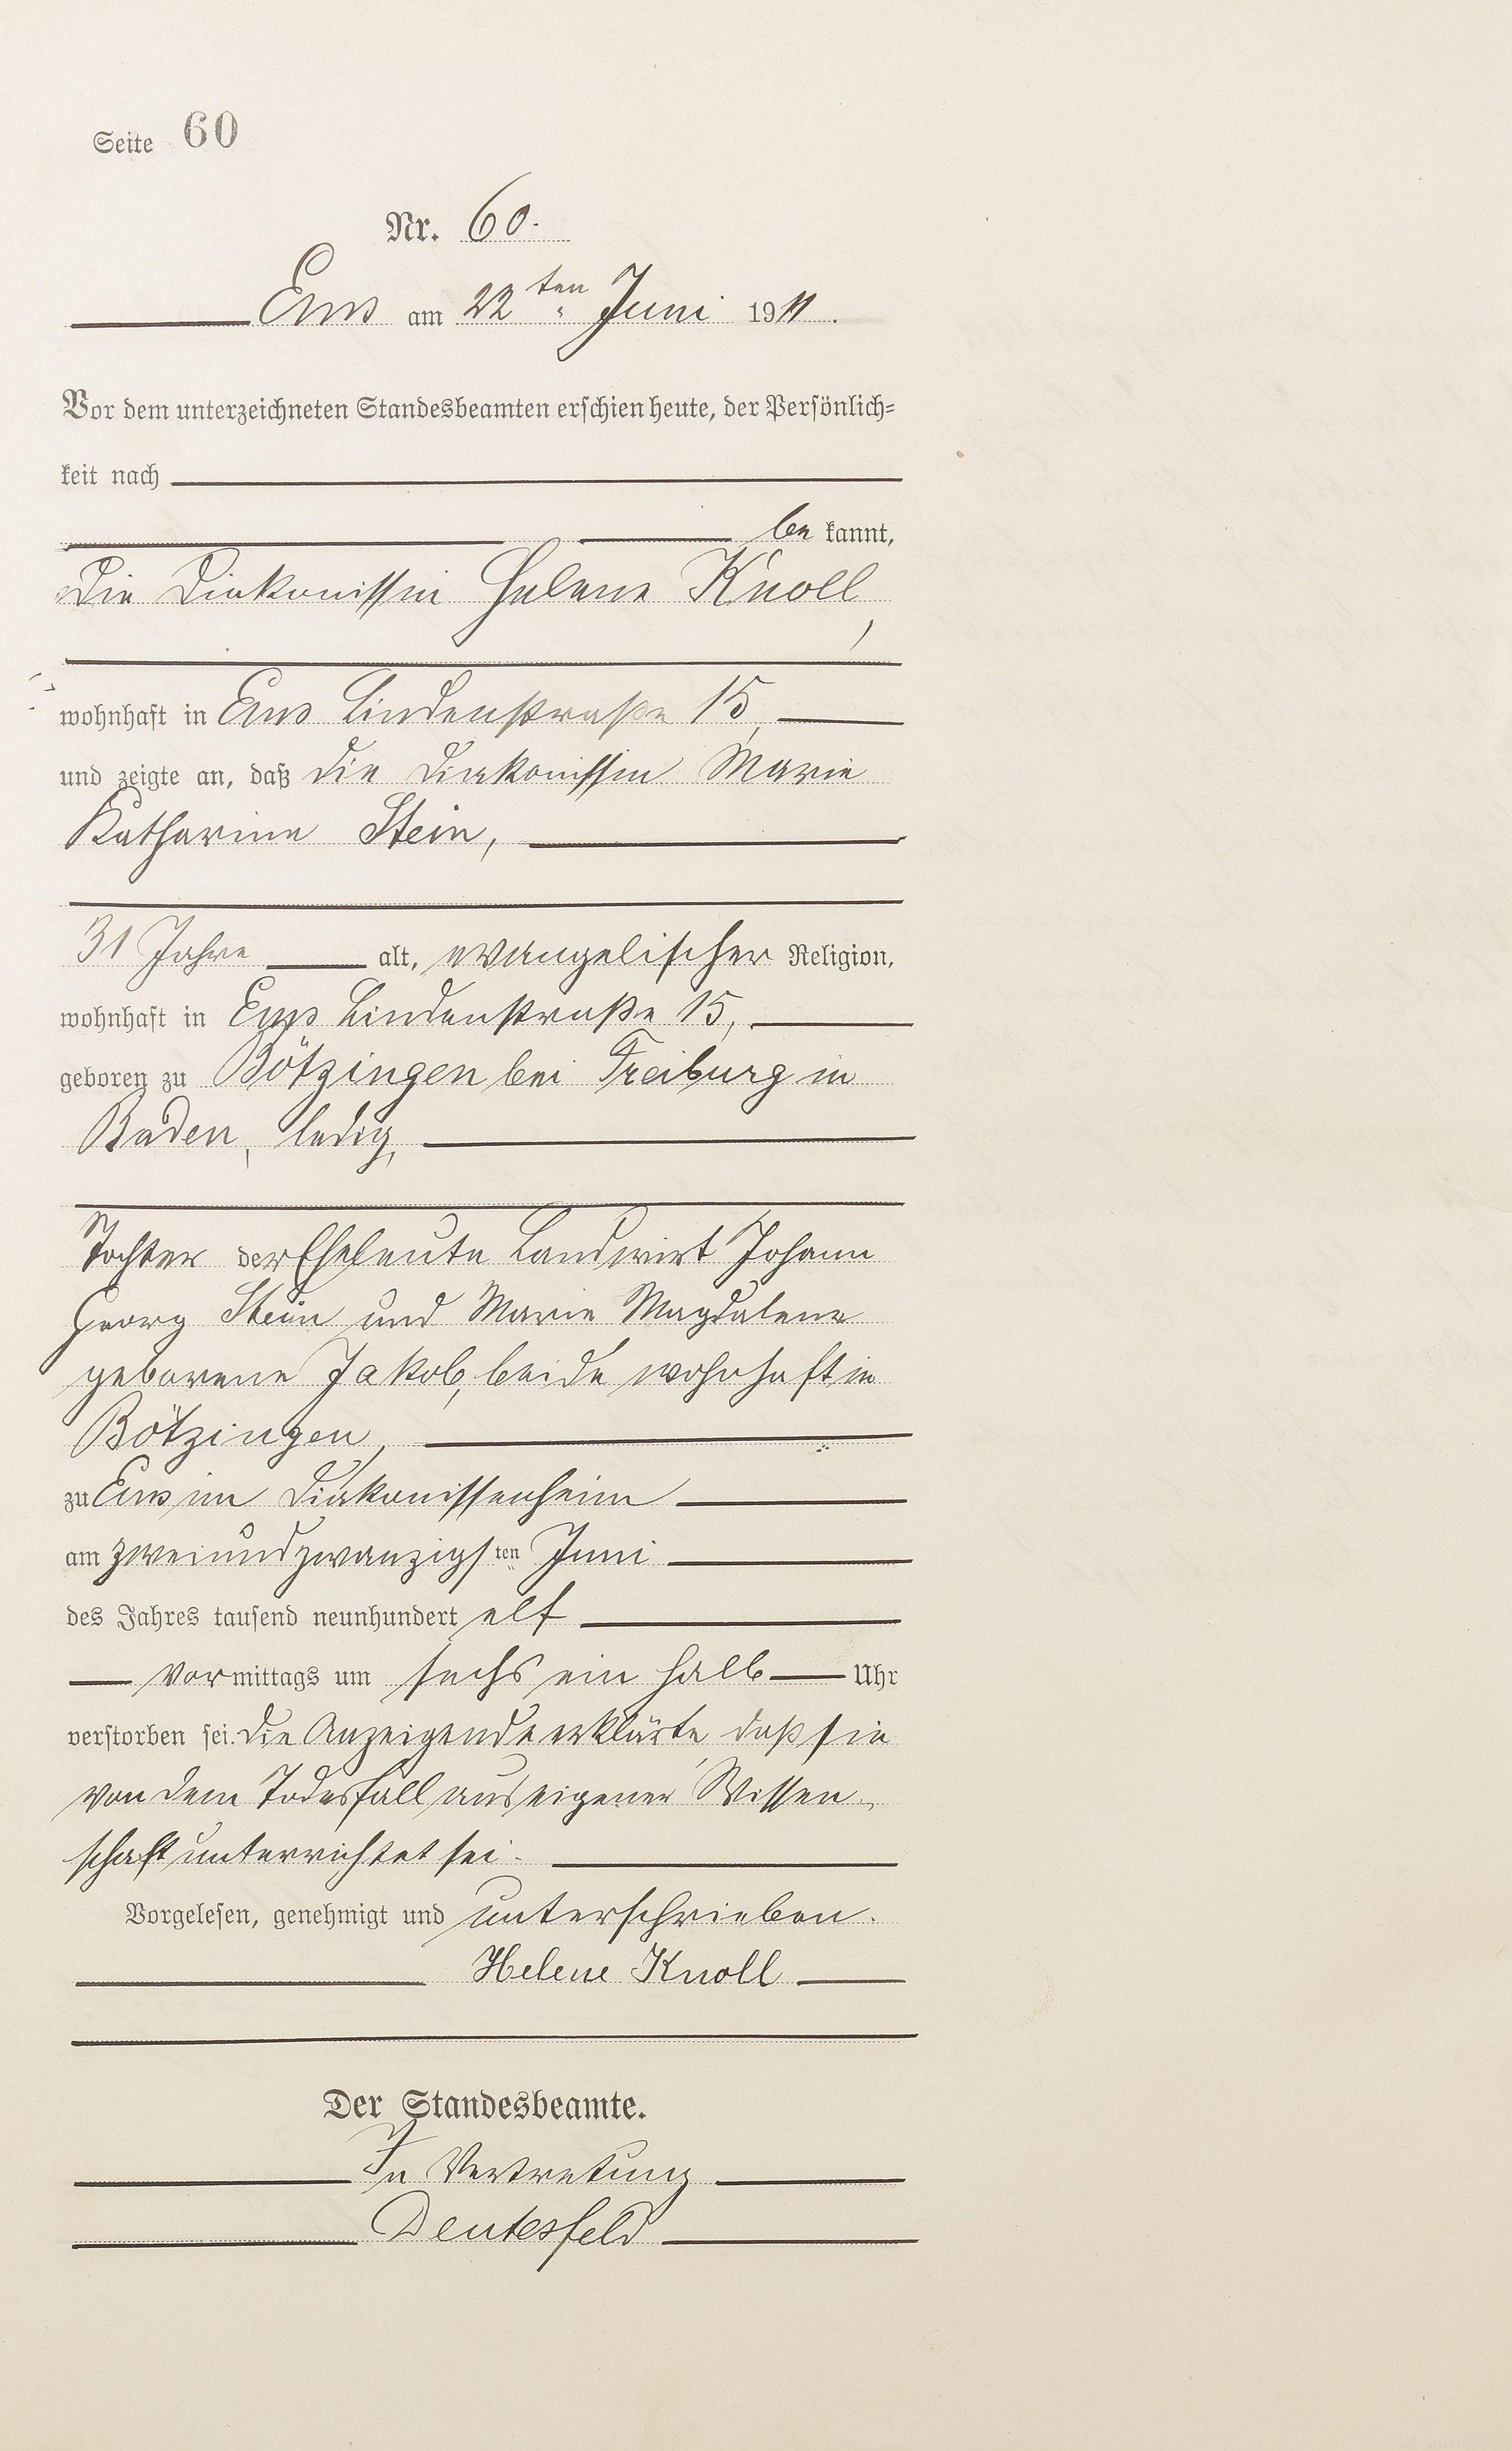 Seite 60
Nr. 60.
Ems am 22ten Juni 1911.
Vor dem unterzeichneten Standesbeamten erschien heute, der Persönlich-
keit nach
be kannt,
die Diakonissin Helene Knoll,
wohnhaft in Ems Lindenstraße 15,
und zeigte an, daß die Diakonissin Marie
Katharina Stein,
31 Jahre alt, evangelischer Religion,
wohnhaft in Ems Lindenstraße 15,
geboren zu Bötzingen bei Freiburg in
Baden, ledig,
Tochter der Eheleute Landwirt Johann
Georg Stein und Marie Magdalene
geborene Jakob, beide wohnhaft in
Bötzingen,
zu Ems im Diakonissenheim
am zweiundzwanzigsten Juni
des Jahres tausend neunhundert elf
Vormittags um sechs ein halb Uhr
verstorben sei. Die Anzeigende erklärte, daß sie
von dem Todesfall aus eigener Wissen-
schaft unterrichtet sei.
Vorgelesen, genehmigt und unterschrieben.
Helene Knoll
Der Standesbeamte.
In Vertretung
Deutesfeld